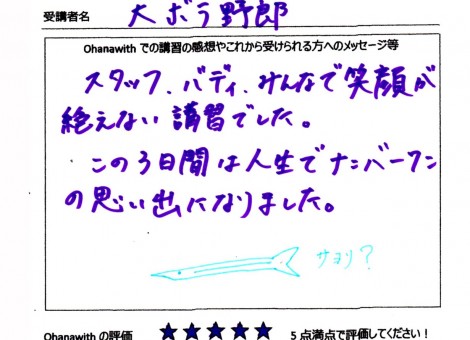 受講者名 大ボラ野郎
Ohanawith での講習の感想やこれから受けられる方へのメッセージ等
スタッフ、バディ、みんなで笑顔が
絶えない講習でした。
この3日間は人生でナンバーワン
の思い出になりました。
サヨリ?
Ohanawith の評価 ★★★★★ 5点満点で評価してください!